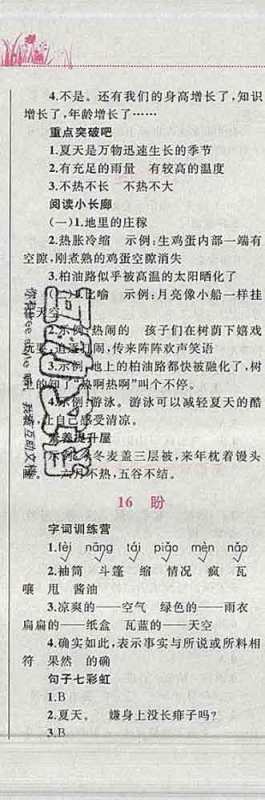 4.不是。还有我们的身高增长了,知识
增长了,年龄增长了……
重点突破吧
1.夏天是万物迅速生长的季节
2.有充足的雨量 有较高的温度
3.不热不长 不热不大
阅读小长廊
(一)1.地里的庄稼
2.热胀冷缩 示例:生鸡蛋内部一端有
空隙,刚煮熟的鸡蛋空隙消失
3.柏油路似乎被高温的太阳晒化了
比喻 示例:月亮像小船一样挂
天空
2.示例:热闹的 孩子们在树荫下嬉戏
玩耍,追逐打闹,传来阵阵欢声笑语
3.示例:地上的柏油路都快被融化了,树
上的知了“热啊热啊”叫个不停。
4.示例:游泳。游泳可以减轻夏天的酷
让自己感受清凉。
升屋
冬麦盖三层被,来年枕着馒头
六月不热,五谷不结。
16 盼
字词训练营
1.lèi nāng tái piǎo mèn nǎo
2.袖筒 斗篷 缩 情况 疯 瓦
嚷 甩 酱油
3.凉爽的——空气 绿色的——雨衣
扁扁的——纸盒 瓦蓝的——天空
4.确实如此,表示事实与所说或所料相
符 果然 的确
句子七彩虹
1.B
2.夏天。 嫌身上没长痱子吗?
3.B